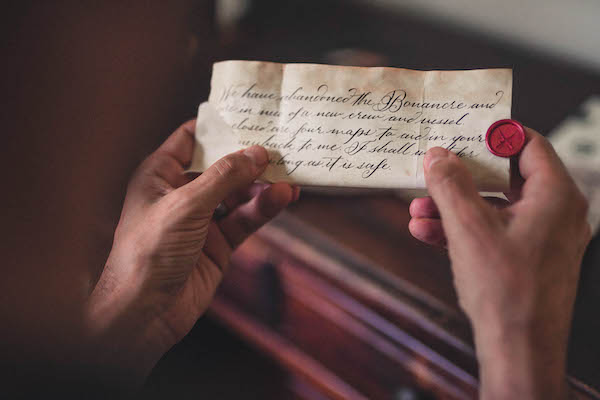 We have abandoned the Bonancre and
in need of a new crew and vessel
closed are four maps to aid in your
back to me. I shall wait for
long as it is safe.